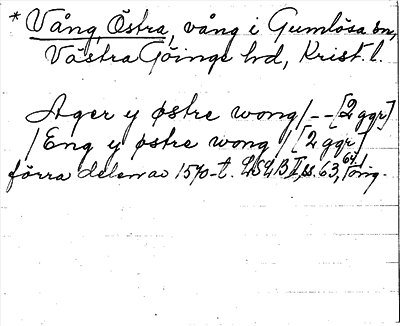 * Vång, Östra, vång i Gumlösa sn,
Västra Göinge hd, Krist. l.
Ager y østre wong/ -- [2 ggr]
/Eng y østre wong/ [2 ggr]
förra delen av 1570-t. LSLB II, ss. 63, 64, orig.